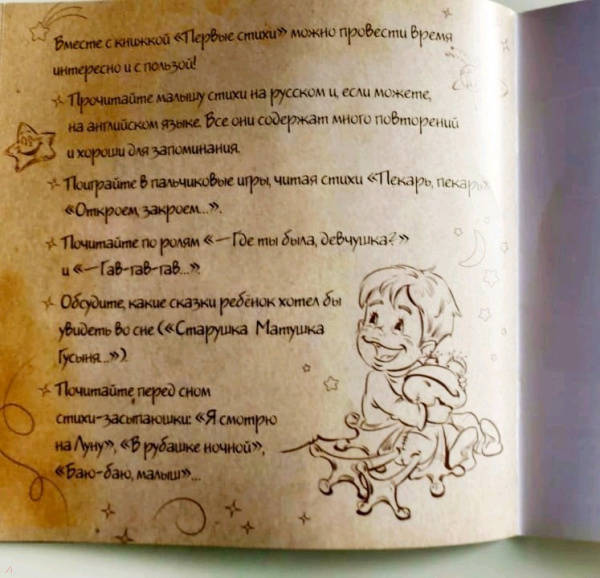 Вместе с книжкой «Первые стихи» можно провести время
интересно и с пользой!
Прочитайте малышу стихи на русском и, если можете,
на английском языке. Все они содержат много повторений
и хороши для запоминания.
Поиграйте в пальчиковые игры, читая стихи «Пекарь, пекарь»
«Откроем, закроем...».
Почитайте по ролям «—Где ты была, девчушка?»
и «—Гав-гав-гав...»
Обсудите, какие сказки ребёнок хотел бы
увидеть во сне («Старушка Матушка
Гусыня...»)
Почитайте перед сном
стихи-засыпаюшки: «Я смотрю
на Луну», «В рубашке ночной»,
«Баю-баю, малыш»...